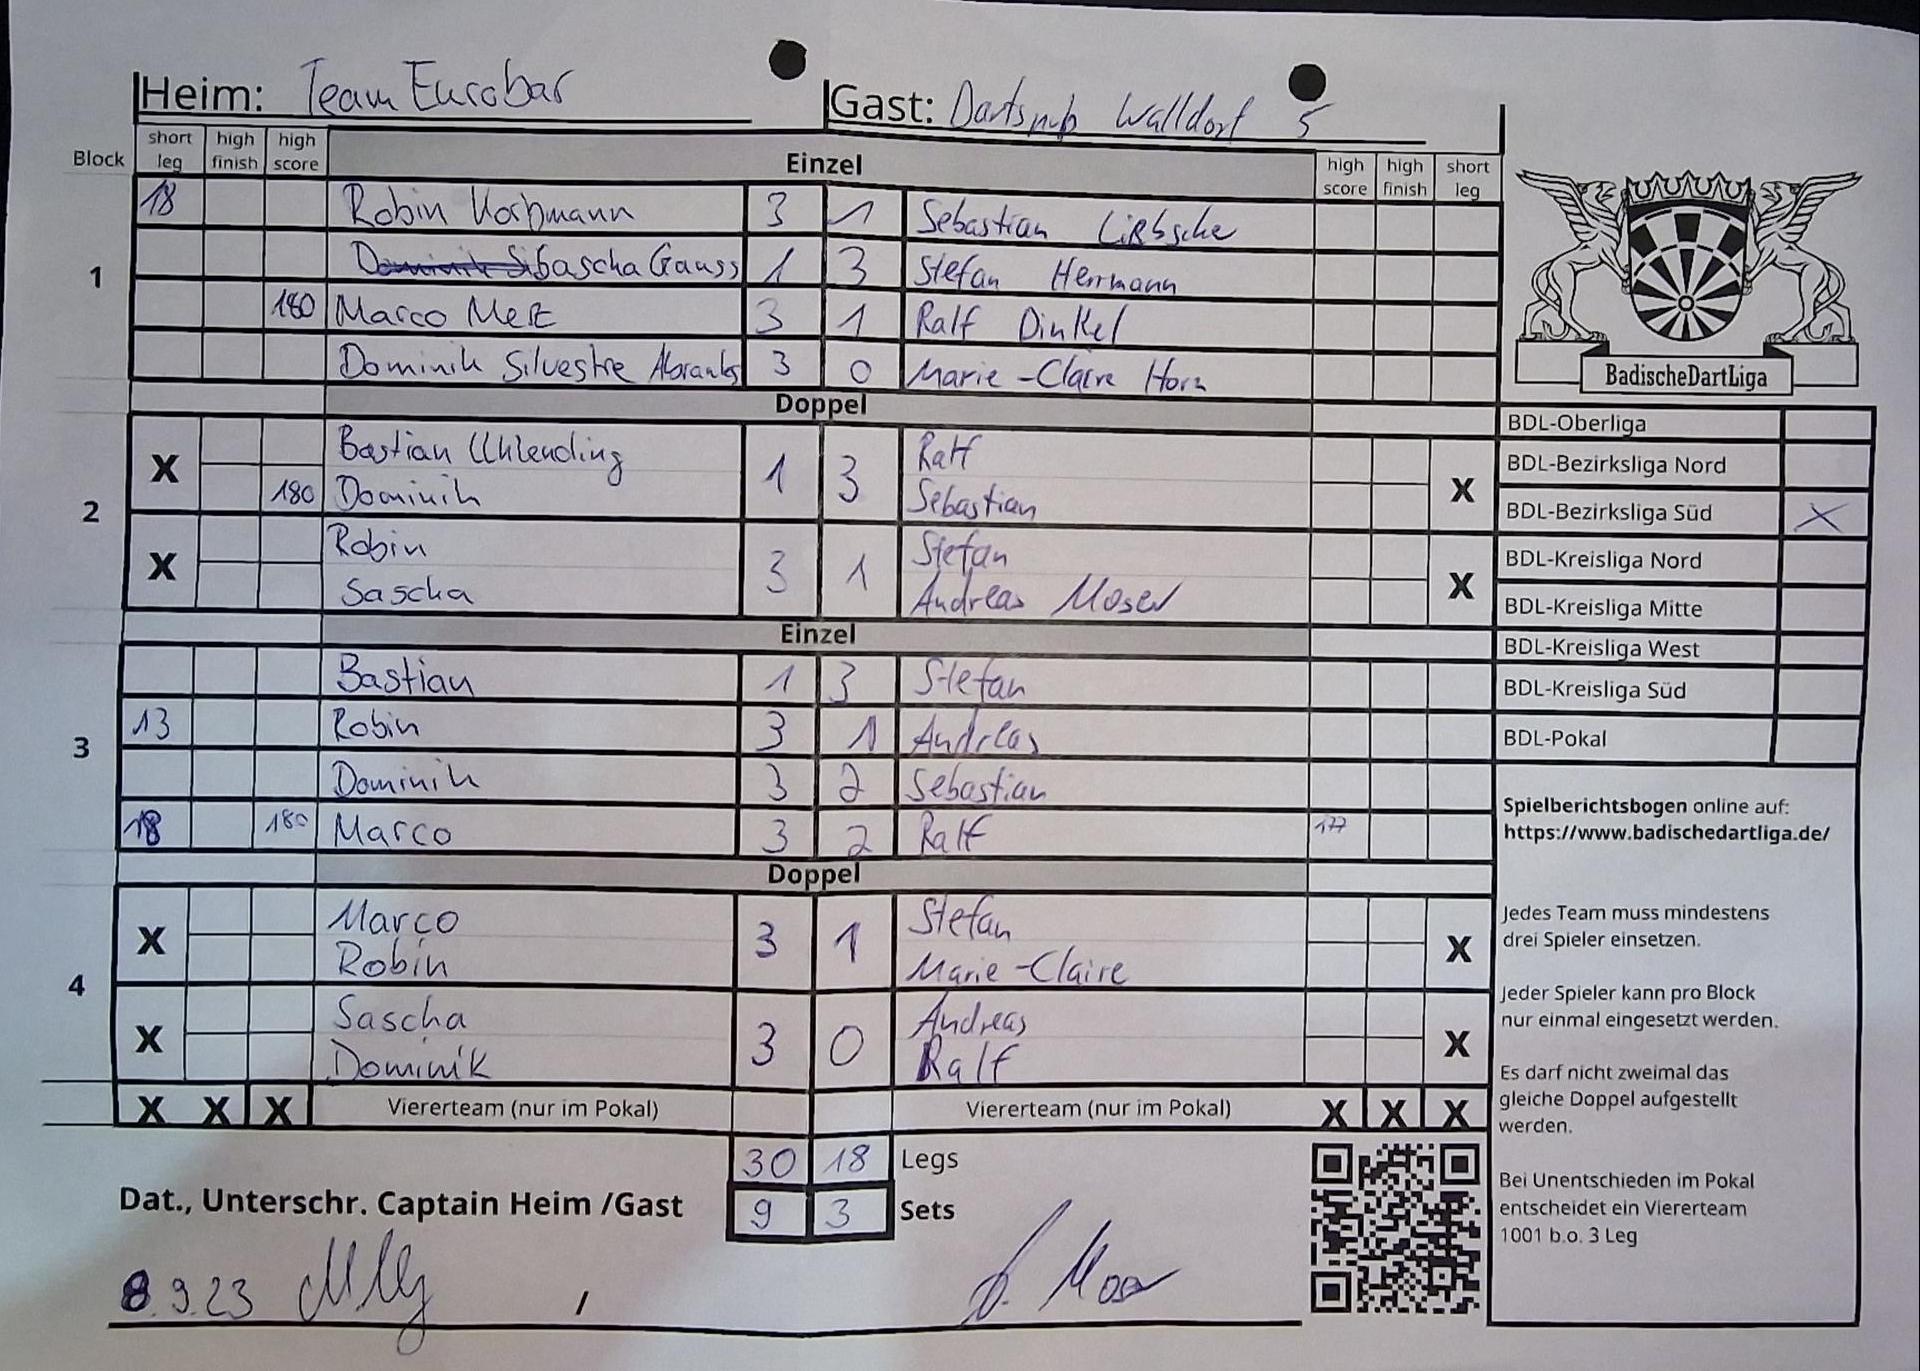 Heim: Team Eurobar Gast: Dartspub Walldorf 5
Block short leg high finish high score Einzel high score high finish short leg
1
18 Robin Korbmann 3 1 Sebastian
Sascha Gauss 1 3 Stefan Herrmann
180 Marco Metz 3 1 Ralf Dinkel
Dominik Silvestre Abrantes 3 0 Marie-Claire Horn
Doppel
2
X Bastian Uhlending 1 3 Ralf X
180 Dominik Sebastian
X Robin 3 1 Stefan X
Sascha Andreas Moser
Einzel
3
Bastian 1 3 Stefan
13 Robin 3 1 Andreas
Dominik 3 2 Sebastian
18 180 Marco 3 2 Ralf 177
Doppel
4
X Marco 3 1 Stefan X
Robin Marie-Claire
X Sascha 3 0 Andreas X
Dominik Ralf
X X X Viererteam (nur im Pokal) Viererteam (nur im Pokal) X X X
30 18 Legs
9 3 Sets
Dat., Unterschr. Captain Heim /Gast
8.9.23 /
BadischeDartLiga
BDL-Oberliga
BDL-Bezirksliga Nord
BDL-Bezirksliga Süd X
BDL-Kreisliga Nord
BDL-Kreisliga Mitte
BDL-Kreisliga West
BDL-Kreisliga Süd
BDL-Pokal
Spielberichtsbogen online auf:
https://www.badischedartliga.de/
Jedes Team muss mindestens
drei Spieler einsetzen.
Jeder Spieler kann pro Block
nur einmal eingesetzt werden.
Es darf nicht zweimal das
gleiche Doppel aufgestellt
werden.
Bei Unentschieden im Pokal
entscheidet ein Viererteam
1001 b.o. 3 Leg